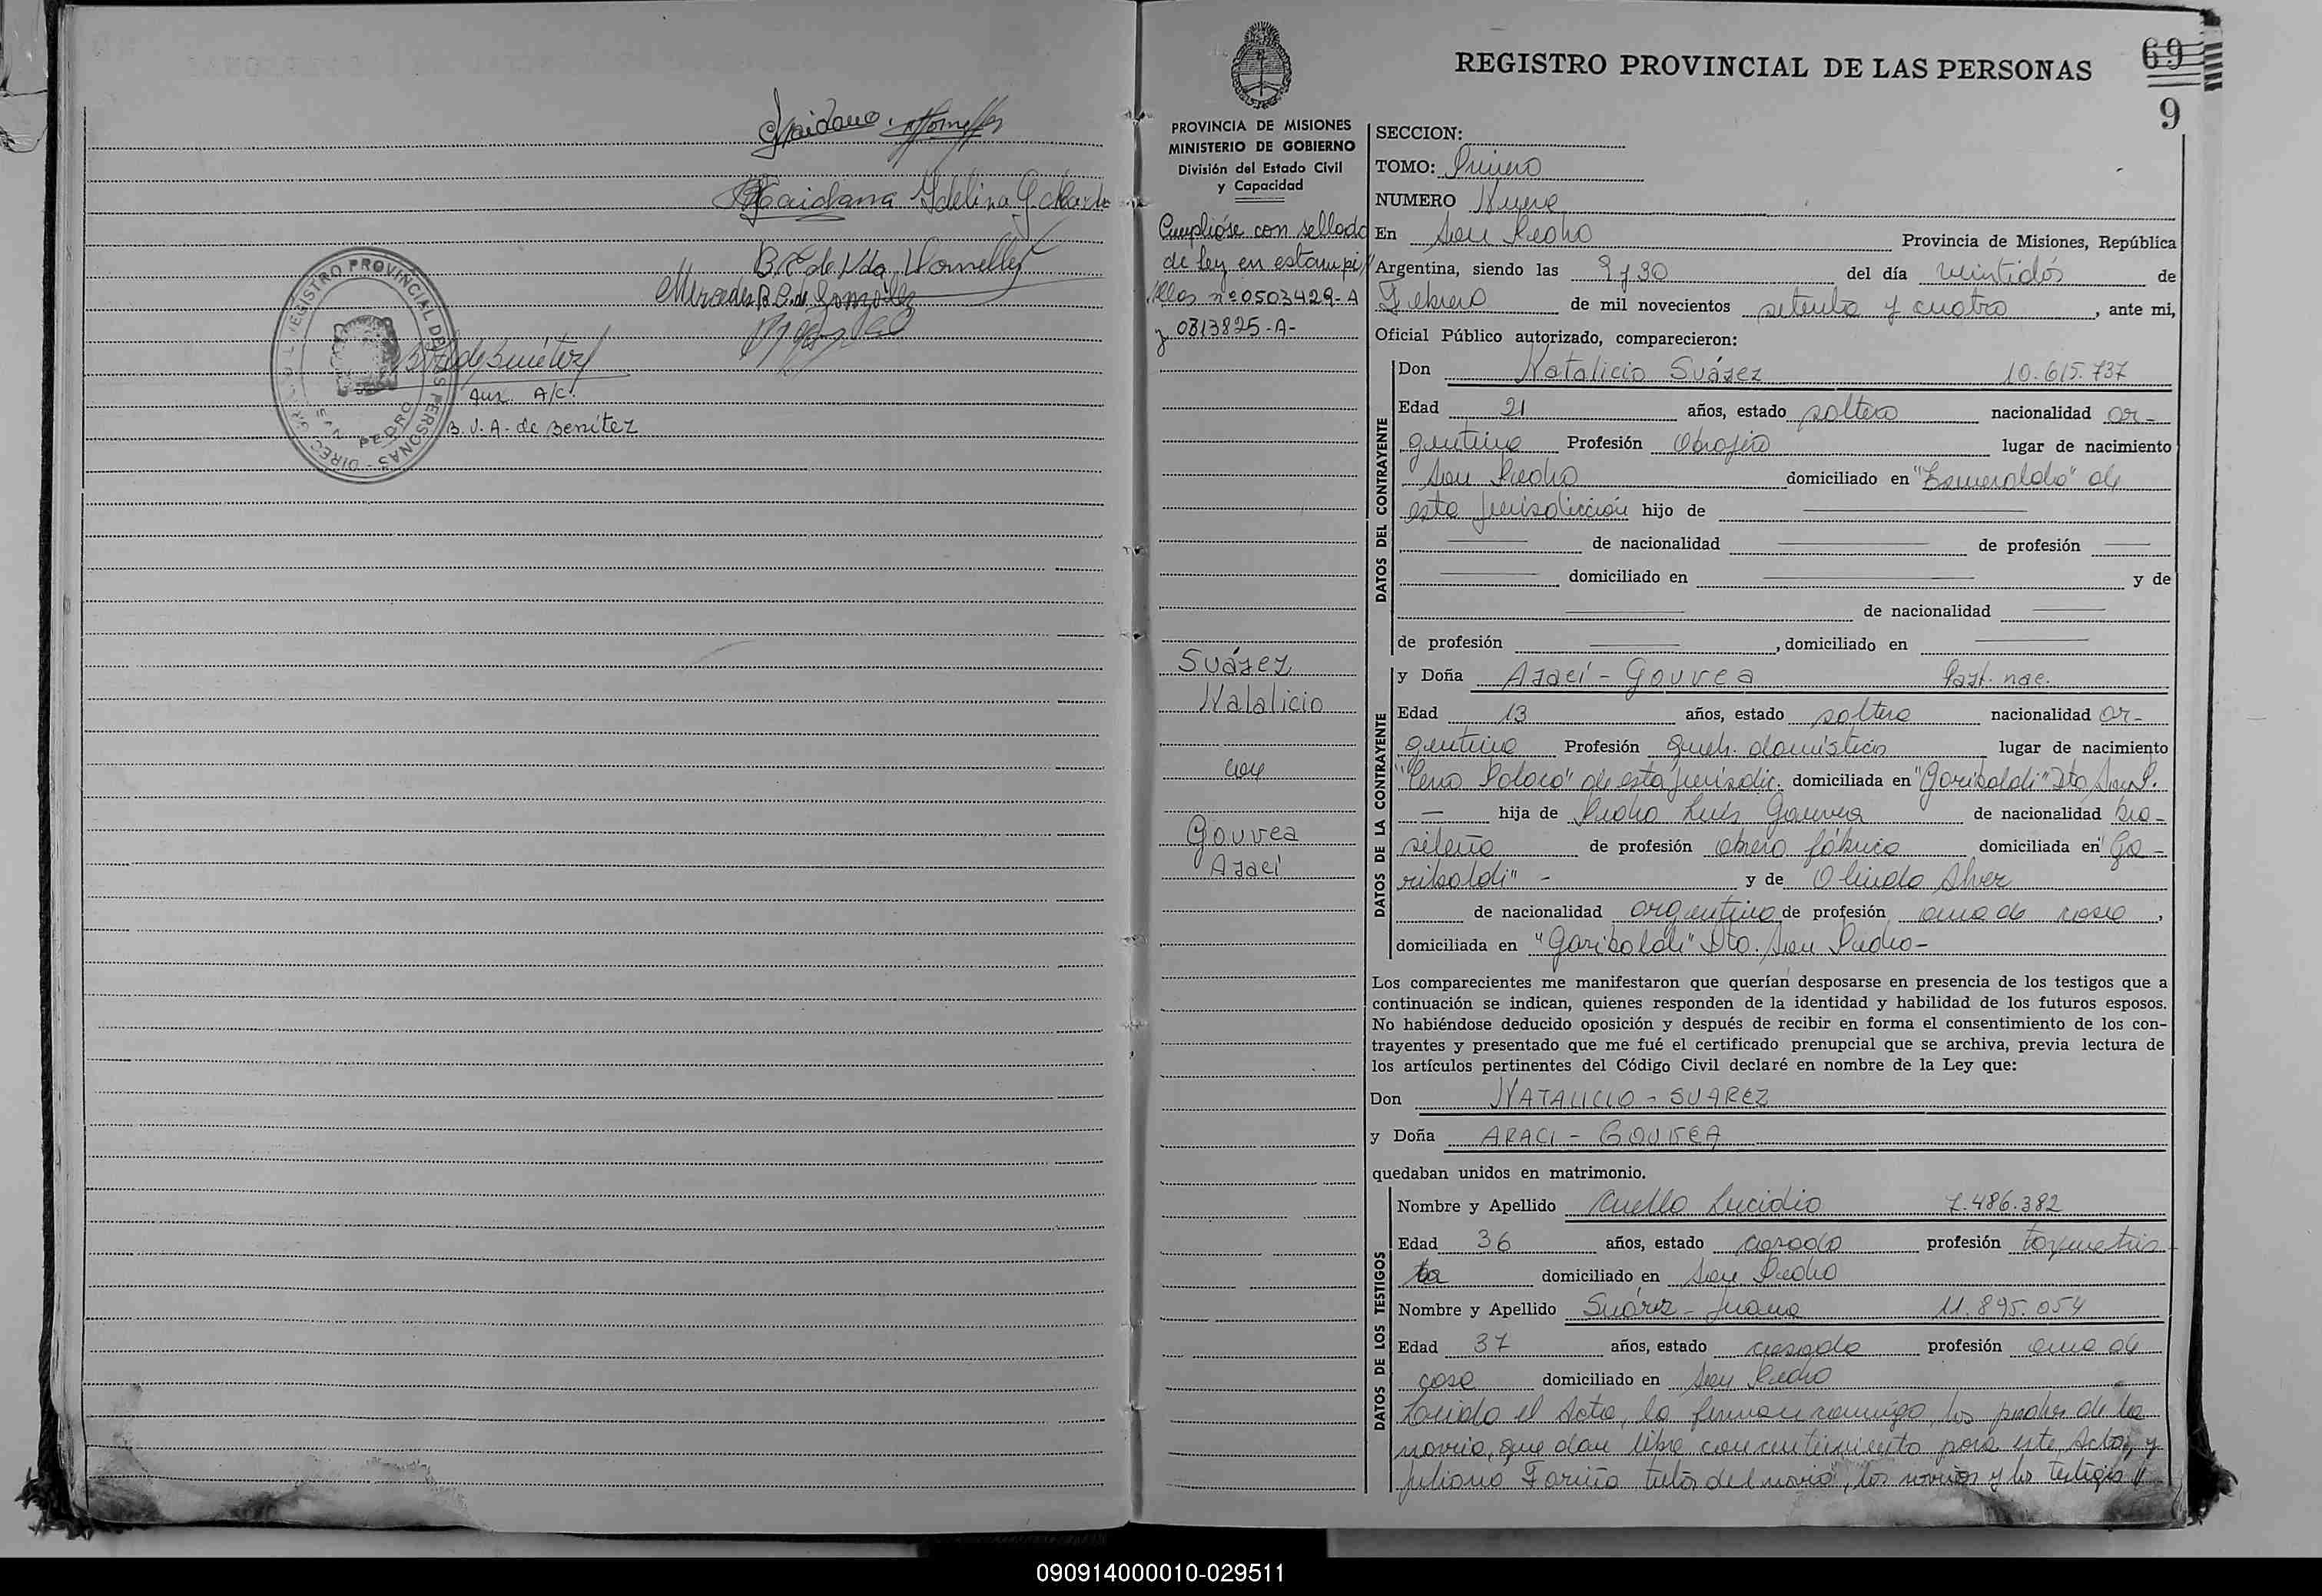 Maidana Idelina G. de
Bª de Vda. Dornelles
Mercedes R. G. de González
B.V.A. de Benítez
Aux. A/C.
B. V. A. de Benítez
REGISTRO PROVINCIAL DE LAS PERSONAS
SAN PEDRO
REGISTRO PROVINCIAL DE LAS PERSONAS
69
9
PROVINCIA DE MISIONES
MINISTERIO DE GOBIERNO
División del Estado Civil
y Capacidad
Cumplióse con sellado
de ley en estampi//
llas nº 0503429-A
y 0813825-A-
Suárez
Natalicio
con
Gouvea
Araci
SECCION:
TOMO: Primero
NUMERO Nueve
En San Pedro Provincia de Misiones, República
Argentina, siendo las 9 y 30 del día veintidós de
Febrero de mil novecientos setenta y cuatro, ante mi,
Oficial Público autorizado, comparecieron:
DATOS DEL CONTRAYENTE
Don Natalicio Suárez 10.615.737
Edad 21 años, estado soltero nacionalidad ar-
gentina Profesión Obrajero lugar de nacimiento
San Pedro domiciliado en "Esmeralda" de
esta jurisdicción hijo de
de nacionalidad de profesión
domiciliado en y de
de nacionalidad
de profesión , domiciliado en
DATOS DE LA CONTRAYENTE
y Doña Araci - Gouvea Part. nac.
Edad 13 años, estado soltera nacionalidad ar-
gentina Profesión Queh. domésticos lugar de nacimiento
de esta jurisdic. domiciliada en "Garibaldi" Dto. San P.
hija de Pedro Luis Gouvea de nacionalidad bra-
sileña de profesión obrero fábrica domiciliada en "Ga-
ribaldi" - y de Olinda Alvez
de nacionalidad argentina de profesión ama de casa,
domiciliada en "Garibaldi" Dto. San Pedro-
Los comparecientes me manifestaron que querían desposarse en presencia de los testigos que a
continuación se indican, quienes responden de la identidad y habilidad de los futuros esposos.
No habiéndose deducido oposición y después de recibir en forma el consentimiento de los con-
trayentes y presentado que me fué el certificado prenupcial que se archiva, previa lectura de
los artículos pertinentes del Código Civil declaré en nombre de la Ley que:
Don NATALICIO - SUAREZ
y Doña ARACI - GOUVEA
quedaban unidos en matrimonio.
DATOS DE LOS TESTIGOS
Nombre y Apellido Cuello Lucidio 7.486.382
Edad 36 años, estado casado profesión taximetris-
ta domiciliado en San Pedro
Nombre y Apellido Suárez - Juana 11.895.054
Edad 37 años, estado casada profesión ama de
casa domiciliado en San Pedro
Leída el Acta, la firman conmigo, los padres de la
novia, que dan libre consentimiento para este Acto, y
Juliana Fariña tutor del novio, los novios y los testigos //
090914000010-029511